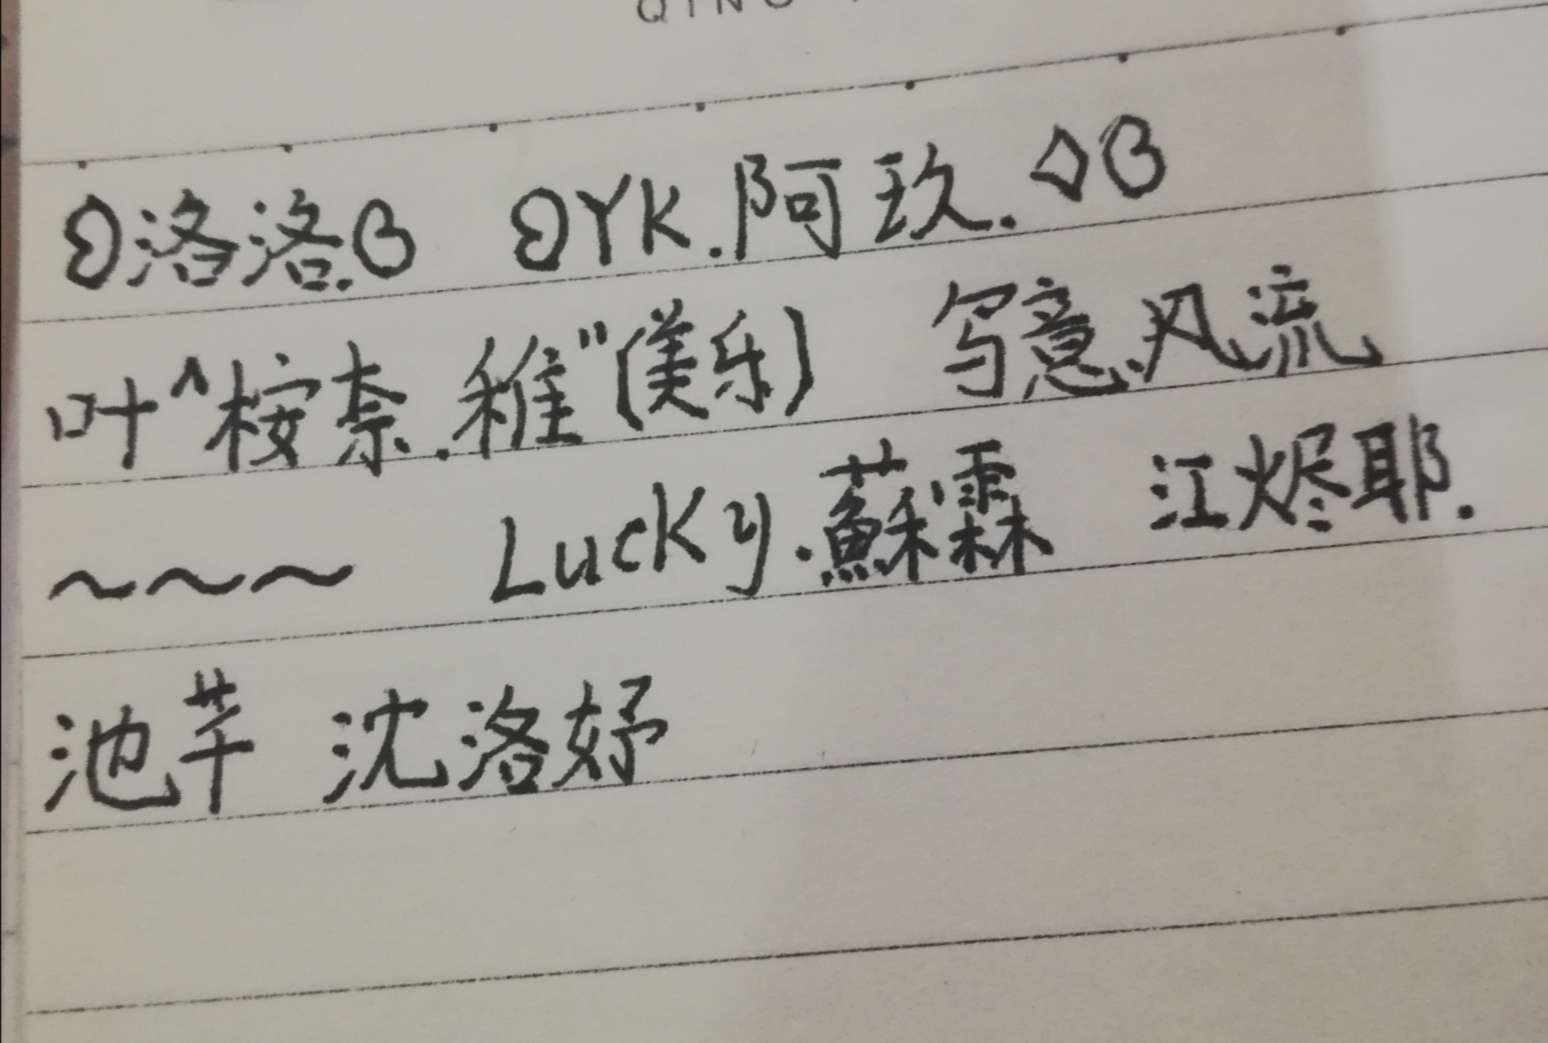 QING
洛洛. YK.阿玖.
叶^桉奈.稚"(美乐) 写意风流
~~~ Lucky.蘇霖 江烬耶.
池芊 沈洛妤